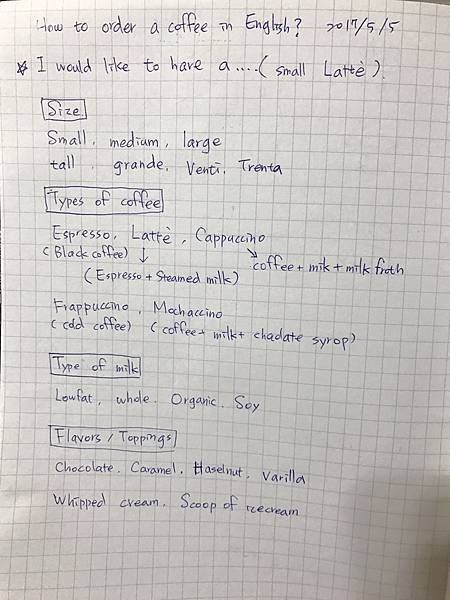 How to order a coffee in English? 2017/5/5
☆ I would like to have a....( small Lattè ).
Size
Small, medium, large
tall, grande, Venti, Trenta
Types of coffee
Espresso, Lattè, Cappuccino
(Black coffee) ↓ ↘ coffee + milk + milk froth
(Espresso + Steamed milk)
Frappuccino, Mochaccino
(cold coffee) (coffee + milk + choclate syrop)
Type of milk
Lowfat, whole. Organic. Soy
Flavors / Toppings
Chocolate. Caramel. Haselnut. Varilla
Whipped cream. Scoop of icecream